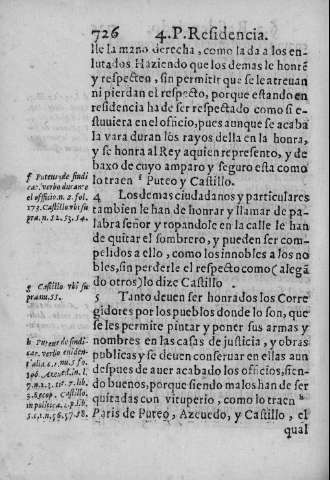 726 4.P.Residencia.
lle la mano derecha, como la da a los en-
lutados Haziendo que los demas le honrē
y respecten, sin permitir que se le atreuan
ni pierdan el respecto, porque estando en
residencia ha de ser respectado como si e-
stuuiera en el oficio, pues aunque se acaba
la vara duran los rayos della en la honra,
y se honra al Rey a quien represento, y de
baxo de cuyo amparo y seguro esta como
lo traen f Puteo y Castillo.
4 Los demas ciudadanos y particulares
tambien le han de honrar y llamar de pa-
labra señor y ropandole en la calle le han
de quitar el sombrero, y pueden ser com-
pelidos a ello, como los innobles a los no
bles, sin perderle el respecto como (alega
do otros) lo dize Castillo.
5 Tanto deuen ser honrados los Corre
gidores por los pueblos donde lo son, que
se les permite pintar y poner sus armas y
nombres en las casas de justicia, y obras
publicas y se deuen conseruar en ellas aun
despues de auer acabado los officios, sien-
do buenos, porque siendo malos han de ser
quitadas con vituperio, como lo traen h
Paris de Puteo, Azeuedo, y Castillo, el
qual
f Puteus de sindi
cat. verbo durante
el officio. n. 2. fol.
173. Castillo vbi su
pra, n. 52. 53. 54.
g Castillo vbi su
pra nu. 55.
h Puteus de sindi-
cat. verbo
Castillo,
in politica